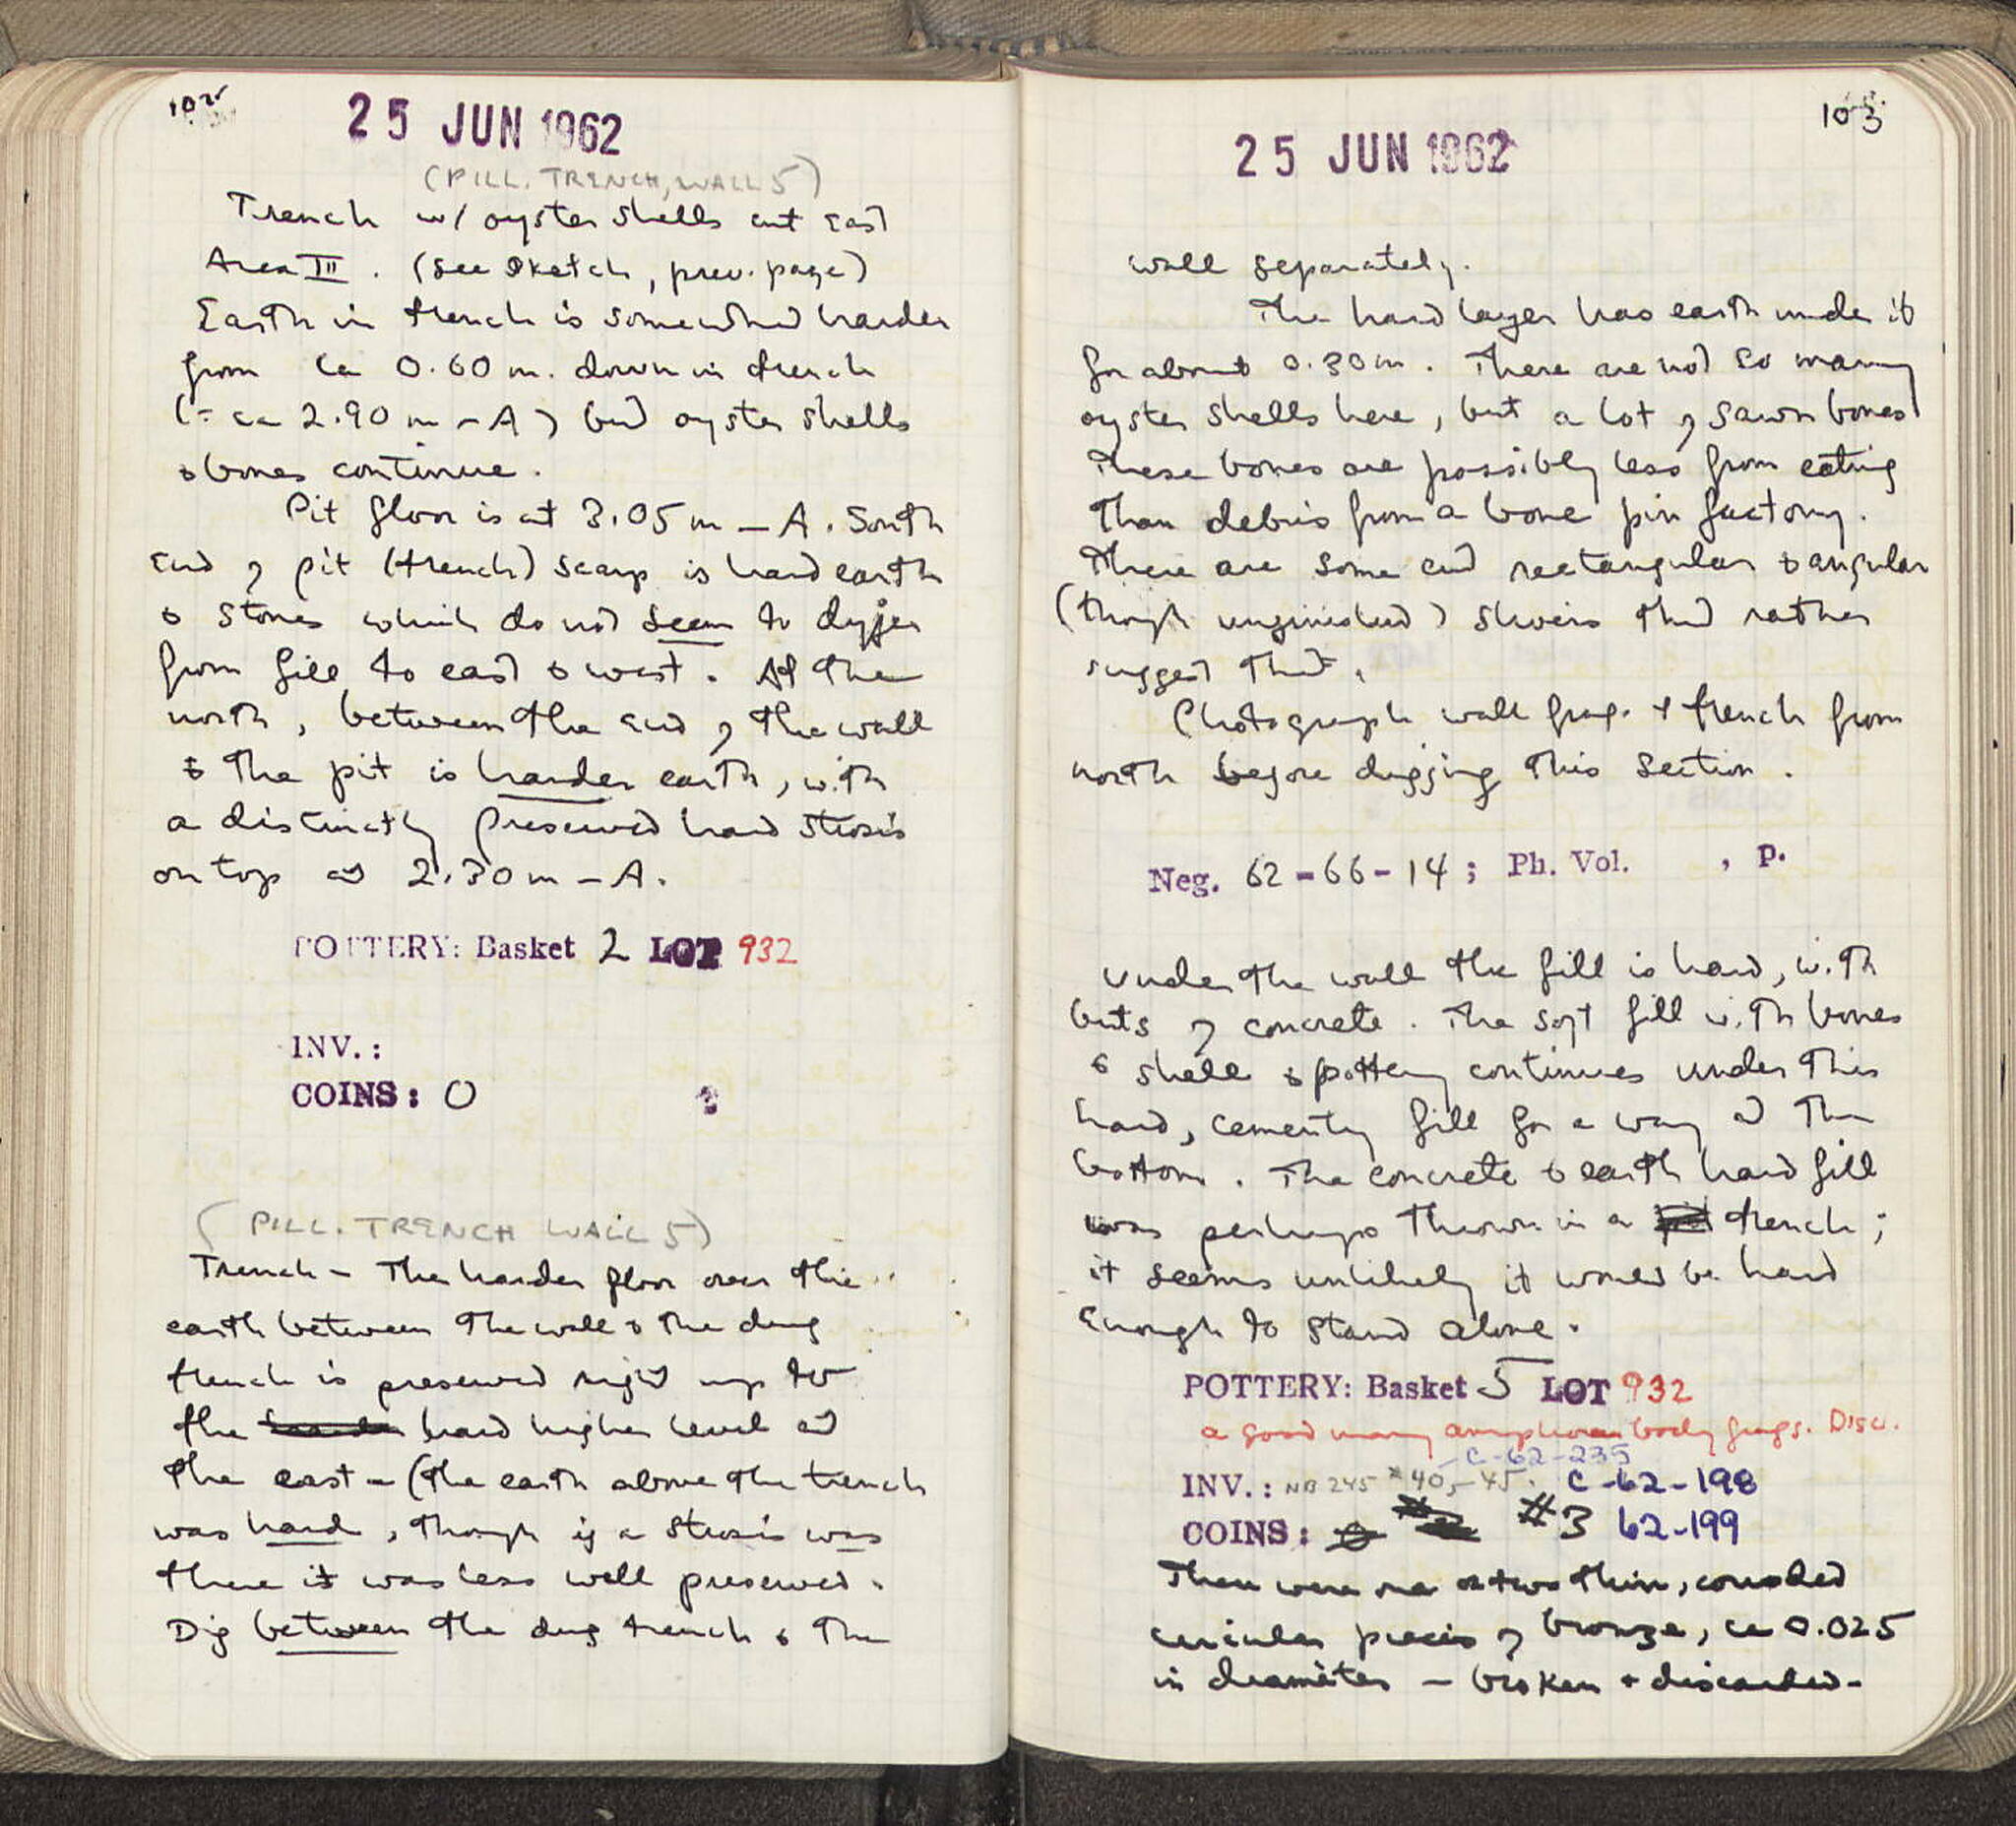 102
25 JUN 1962
(PILL. TRENCH, WALL 5)
Trench w/ oyster shells cut East
Area III. (see sketch, prev. page)
Earth in trench is somewhat harder
from ca 0.60 m. down in trench
(= ca 2.90 m - A) but oyster shells
& bones continue.
Pit floor is at 3.05 m - A. South
End of pit (trench) scarp is hard earth
& stones which do not seem to differ
from fill to east & west. At the
north, between the end of the wall
& the pit is harder earth, with
a distinctly preserved hard strosis
on top at 2.30 m - A.
POTTERY: Basket 2 LOT 932
INV.:
COINS: 0
(PILL. TRENCH WALL 5)
Trench - The harder floor over the
earth between the wall & the dug
trench is preserved right up to
the hard higher level at
the east - (the earth above the trench
was hard, though if a strosis was
there it was less well preserved.
Dig between the dug trench & the
103
25 JUN 1962
wall separately.
The hard layer has earth under it
for about 0.30 m. There are not so many
oyster shells here, but a lot of sawn bones
These bones are possibly less from eating
than debris from a bone pin factory.
There are some cut rectangular & angular
(though unfinished) slivers that rather
suggest that.
Photograph wall frag. & trench from
north before digging this section.
Neg. 62-66-14; Ph. Vol. , p.
Under the wall the fill is hard, with
bits of concrete. The soft fill with bones
& shell & pottery continues under this
hard, cementy fill for a way at the
bottom. The concrete & earth hard fill
was perhaps thrown in a trench;
it seems unlikely it would be hard
Enough to stand alone.
POTTERY: Basket 5 LOT 932
a good many amphora body frags. Disc.
C-62-235
INV.: NB 245 #40,-45. C-62-198
COINS: #3 62-199
There were one or two thin, corroded
circular pieces of bronze, ca 0.025
in diameter - broken + discarded-